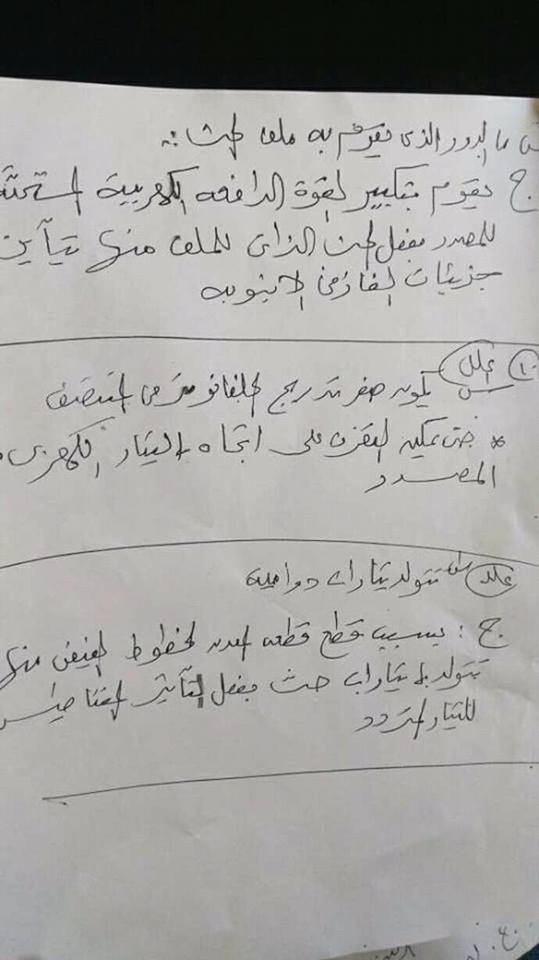 س ما الدور الذى يقوم به ملف الحث :.
ج يقوم بتكبير القوة الدافعه الكهربية المستحثة
للمصدر بفعل الحث الذاتى للملف منها تتأين
جزيئات الغاز فى الانبوبه
١٠) علل
س يكون صفر تدريج الجلفانومتر فى المنتصف
* حتى يمكن التعرف على اتجاه التيار الكهربى
المصدر
علل س تتولد تيارات دوامية
ج : بسبب قطع قطعه المعدن لخطوط الفيض منها
تتولد بها تيارات حث بفعل التأثير المغناطيسى
للتيار المتردد